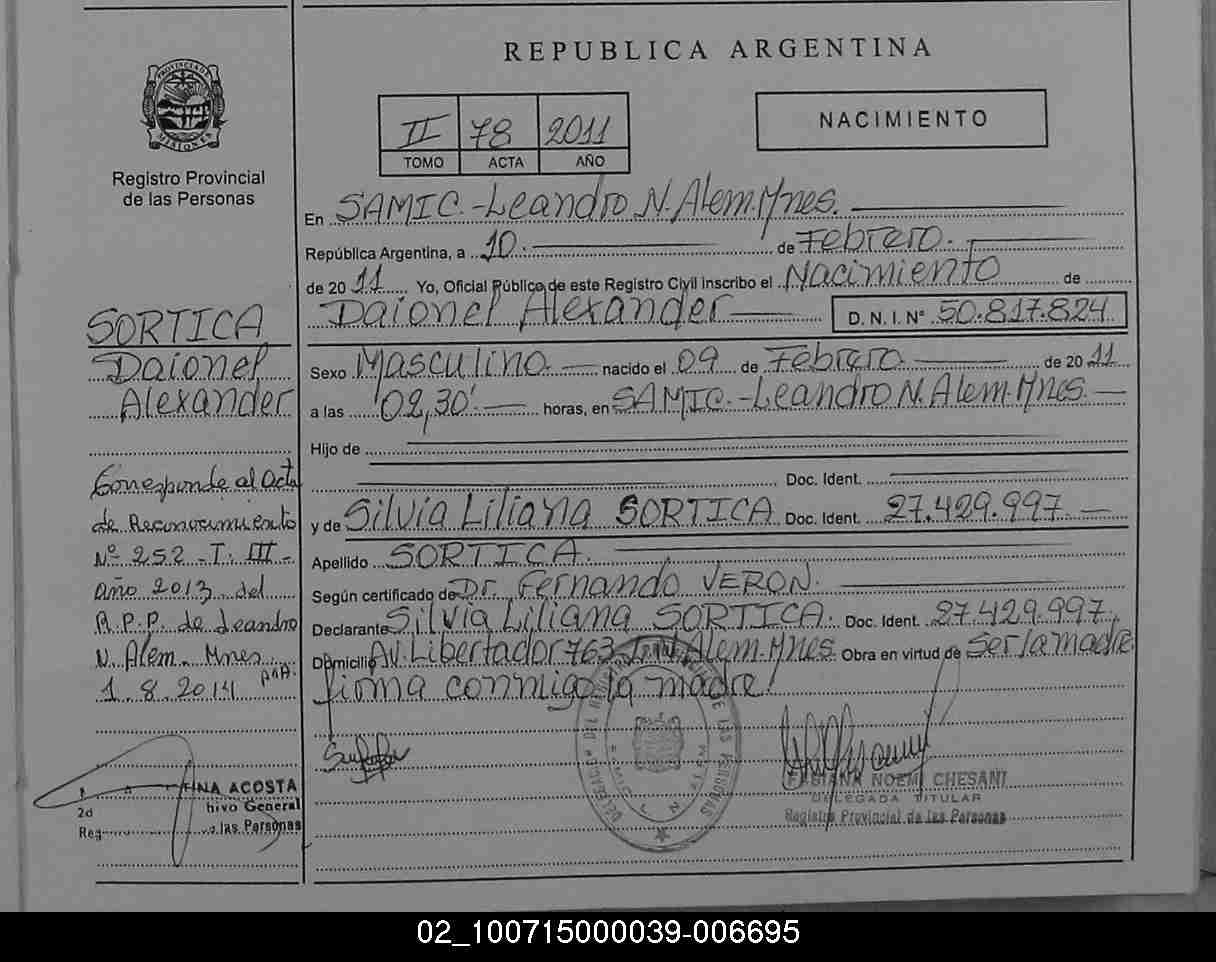 REPUBLICA ARGENTINA
PROVINCIA DE
MISIONES
Registro Provincial
de las Personas
II 78 2011
TOMO ACTA AÑO
NACIMIENTO
En SAMIC.-Leandro N. Alem.Mnes.
República Argentina, a 10. de Febrero.
de 20 11 Yo, Oficial Público de este Registro Civil Inscribo el Nacimiento de
Daionel Alexander D. N. I. Nº 50.817.824
Sexo Masculino. nacido el 09 de Febrero. de 20 11
a las 02,30'. horas, en SAMIC.-Leandro N. Alem.Mnes.
Hijo de
Doc. Ident.
y de Silvia Liliana SORTICA Doc. Ident. 27.429.997.
Apellido SORTICA.
Según certificado de Dr. Fernando VERON.
Declarante Silvia Liliana SORTICA. Doc. Ident. 27.429.997,
Domicilio Av. Libertador 763 L.N. Alem.Mnes. Obra en virtud de Ser la madre
firma conmigo la madre.
SORTICA
Daionel
Alexander
Corresponde al Acta
de Reconocimiento
Nº 252 - T: III -
año 2013 del
R.P.P. de Leandro
N. Alem. Mnes.
1.8.2014
INA ACOSTA
hivo General
Reg las Personas
DE LAS PERSONAS
FABIANA NOEMI CHESANI
DELEGADA TITULAR
Registro Provincial de las Personas
02_100715000039-006695